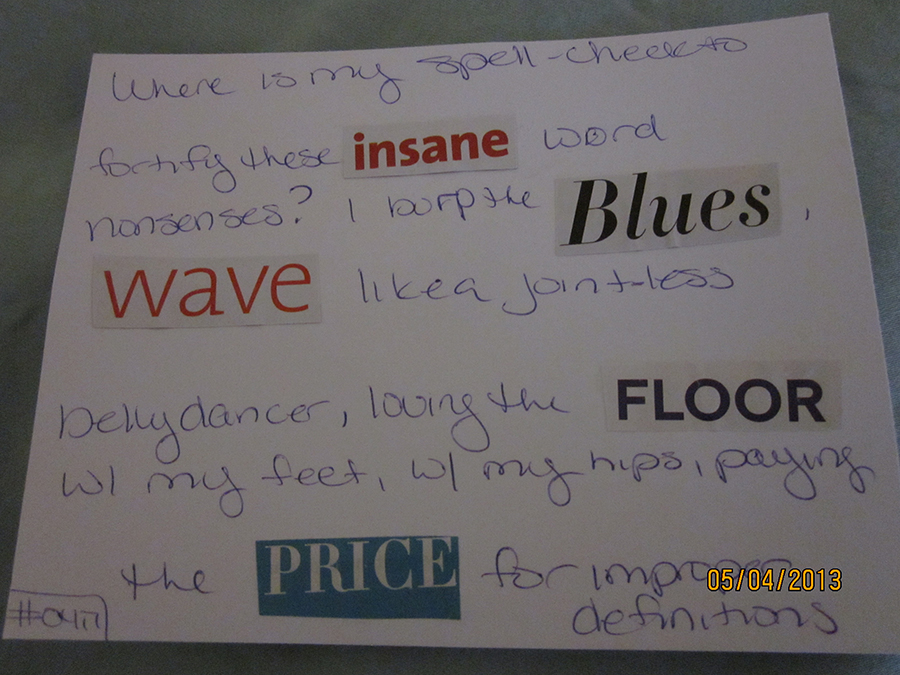 Where is my spell-check to
fortify these insane word
nonsenses? I burp the Blues,
wave like a joint-less
bellydancer, loving the FLOOR
w/ my feet, w/ my hips, paying
the PRICE for improper
definitions
05/04/2013